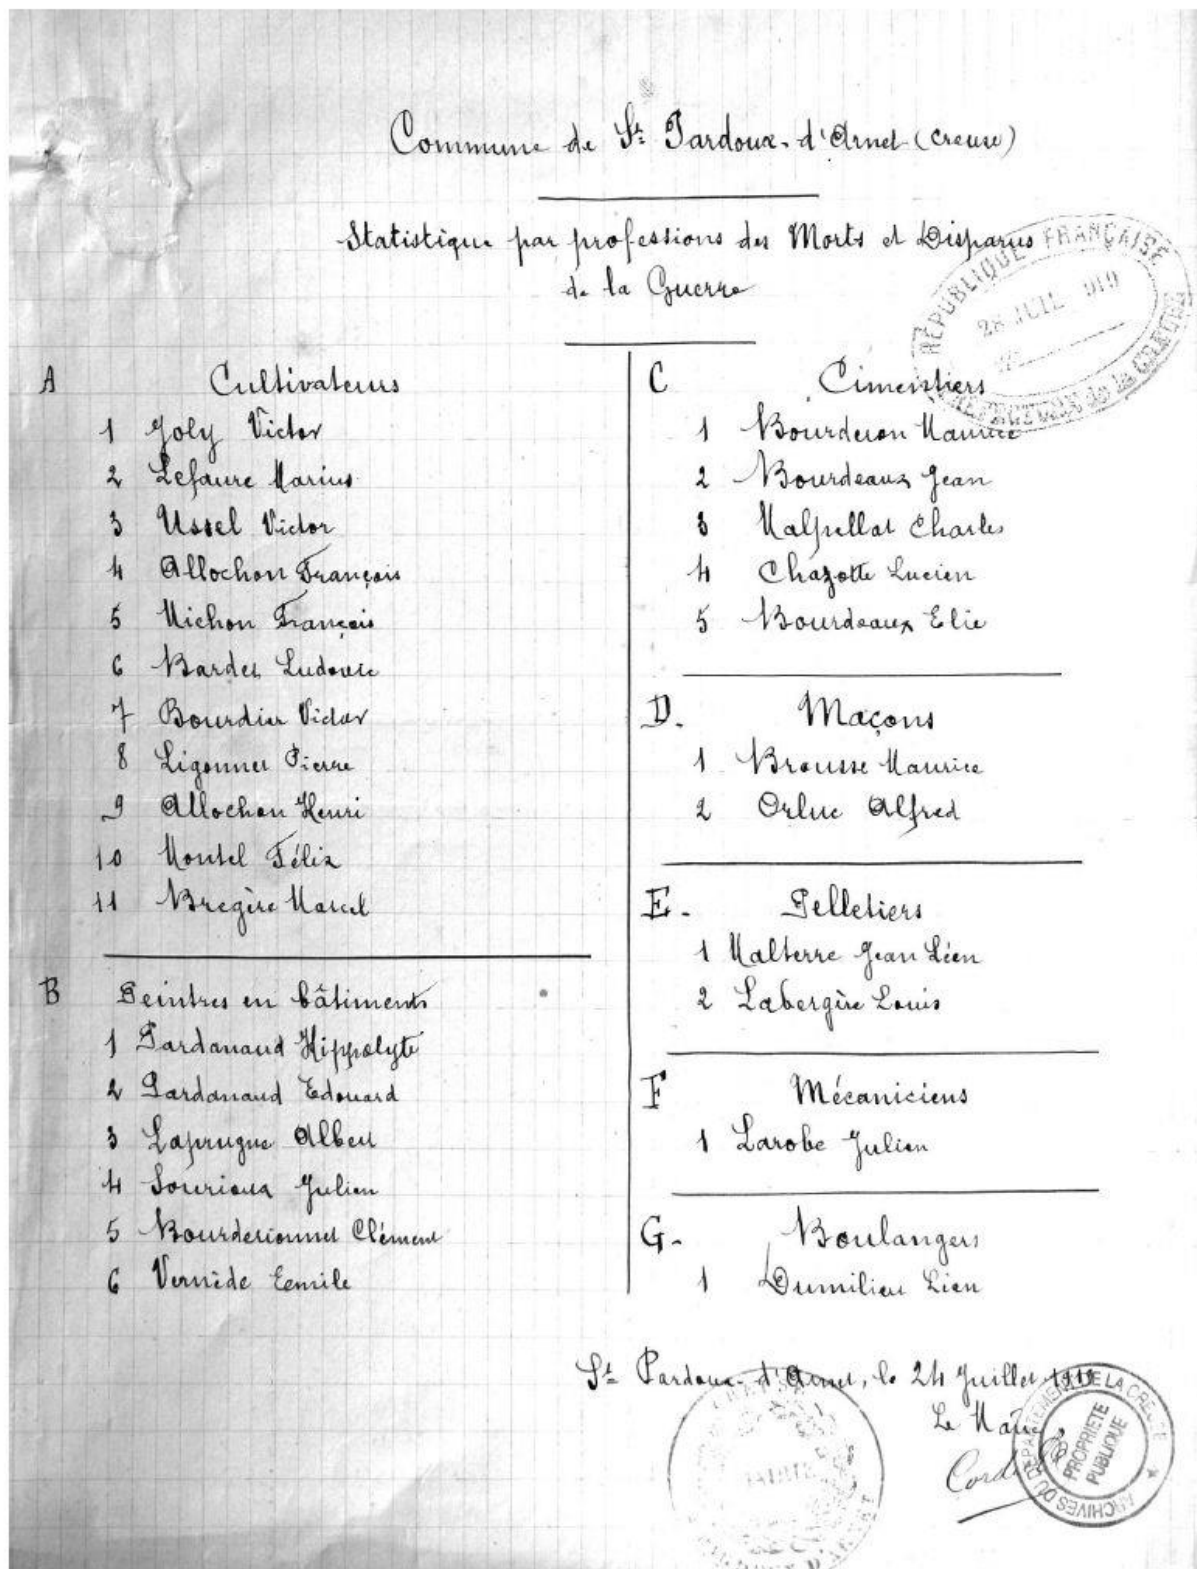 Commune de St Pardoux-d'Arnet (Creuse)
Statistique par professions des Morts et Disparus
de la Guerre
RÉPUBLIQUE FRANÇAISE
28 JUIL 1919
PRÉFECTURE de la CREUSE
A Cultivateurs
1 Joly Victor
2 Lefaure Marius
3 Ussel Victor
4 Allochon François
5 Michon François
6 Bardet Ludovic
7 Bourdier Victor
8 Ligonnet Pierre
9 Allochon Henri
10 Montel Félix
11 Bregère Marcel
B Peintres en bâtiments
1 Pardanaud Hippolyte
2 Pardanaud Edouard
3 Laprugne Albert
4 Sourioux Julien
5 Bourderionnet Clément
6 Vernède Eemile
C Cimentiers
1 Bourderon Maurice
2 Bourdeaux Jean
3 Malpellat Charles
4 Chazotte Lucien
5 Bourdeaux Elie
D. Maçons
1 Brousse Maurice
2 Orluc Alfred
E. Pelletiers
1 Malterre Jean Léon
2 Labergère Louis
F Mécaniciens
1 Larobe Julien
G. Boulangers
1 Dumilieu Léon
St Pardoux-d'Arnet, le 24 Juillet 1919
Le Maire,
MAIRIE
ARCHIVES DU DÉPARTEMENT DE LA CREUSE
PROPRIETE
PUBLIQUE